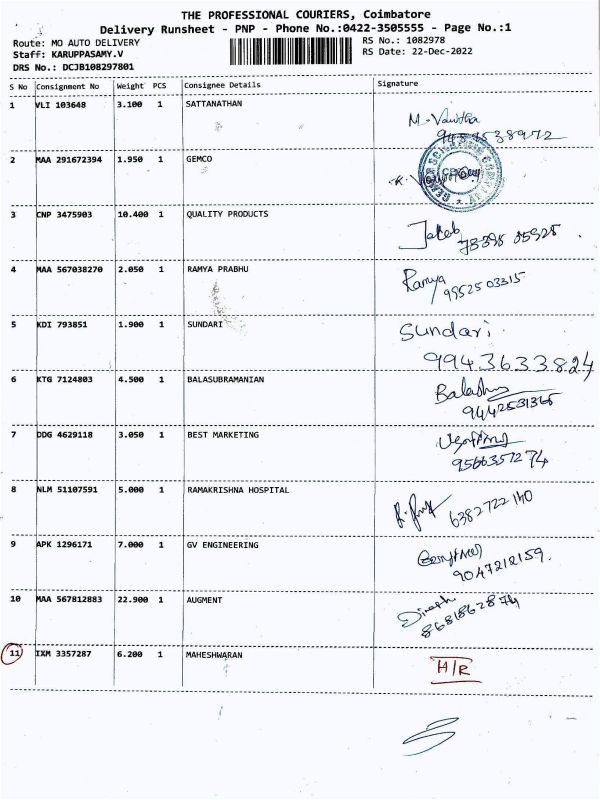 THE PROFESSIONAL COURIERS, Coimbatore
Delivery Runsheet - PNP - Phone No.:0422-3505555 - Page No.:1
Route: MO AUTO DELIVERY RS No.: 1082978
Staff: KARUPPASAMY.V RS Date: 22-Dec-2022
DRS No.: DCJB108297801
S No Consignment No Weight PCS Consignee Details Signature
1 VLI 103648 3.100 1 SATTANATHAN
M. Vanitha
2 MAA 291672394 1.950 1 GEMCO
3 CNP 3475903 10.400 1 QUALITY PRODUCTS
4 MAA 567038270 2.050 1 RAMYA PRABHU
Ramya
9952503315
5 KDI 793851 1.900 1 SUNDARI
Sundari
9943633824
6 KTG 7124803 4.500 1 BALASUBRAMANIAN
9442531365
7 DDG 4629118 3.050 1 BEST MARKETING
9566357274
8 NLM 51107591 5.000 1 RAMAKRISHNA HOSPITAL
6382722140
9 APK 1296171 7.000 1 GV ENGINEERING
9047212159.
10 MAA 567812883 22.900 1 AUGMENT
Dinesh
8681862874
11 IXM 3357287 6.200 1 MAHESHWARAN
H/R